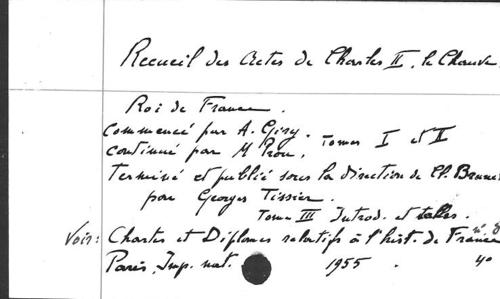 Recueil des Actes de Charles II, le Chauve
Roi de France.
commencé par A. Giry.
continué par M Prou, Tomes I et II
terminé et publié sous la direction de Cl. Brunel
par Georges Tissier.
Tome III Introd. et tables.
Voir: Chartes et Diplomes relatifs à l'hist. de France n. 8
Paris, Imp. nat. 1955. 4°